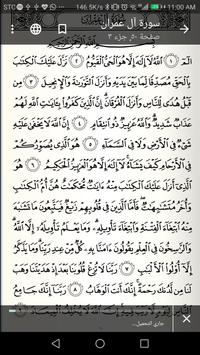 STC 146.5K/s 11:00 AM
سورة آل عمران
صفحة ٥٠، جزء ٣
الٓمٓ ١ ٱللَّهُ لَآ إِلَٰهَ إِلَّا هُوَ ٱلْحَىُّ ٱلْقَيُّومُ ٢ نَزَّلَ عَلَيْكَ ٱلْكِتَٰبَ
بِٱلْحَقِّ مُصَدِّقًا لِّمَا بَيْنَ يَدَيْهِ وَأَنزَلَ ٱلتَّوْرَىٰةَ وَٱلْإِنجِيلَ ٣ مِن قَبْلُ
هُدًى لِّلنَّاسِ وَأَنزَلَ ٱلْفُرْقَانَ إِنَّ ٱلَّذِينَ كَفَرُوا۟ بِـَٔايَٰتِ ٱللَّهِ لَهُمْ
عَذَابٌ شَدِيدٌ وَٱللَّهُ عَزِيزٌ ذُو ٱنتِقَامٍ ٤ إِنَّ ٱللَّهَ لَا يَخْفَىٰ عَلَيْهِ
شَىْءٌ فِى ٱلْأَرْضِ وَلَا فِى ٱلسَّمَآءِ ٥ هُوَ ٱلَّذِى يُصَوِّرُكُمْ فِى
ٱلْأَرْحَامِ كَيْفَ يَشَآءُ لَآ إِلَٰهَ إِلَّا هُوَ ٱلْعَزِيزُ ٱلْحَكِيمُ ٦ هُوَ ٱلَّذِىٓ
أَنزَلَ عَلَيْكَ ٱلْكِتَٰبَ مِنْهُ ءَايَٰتٌ مُّحْكَمَٰتٌ هُنَّ أُمُّ ٱلْكِتَٰبِ
وَأُخَرُ مُتَشَٰبِهَٰتٌ فَأَمَّا ٱلَّذِينَ فِى قُلُوبِهِمْ زَيْغٌ فَيَتَّبِعُونَ مَا تَشَٰبَهَ
مِنْهُ ٱبْتِغَآءَ ٱلْفِتْنَةِ وَٱبْتِغَآءَ تَأْوِيلِهِۦ وَمَا يَعْلَمُ تَأْوِيلَهُۥٓ إِلَّا ٱللَّهُ
وَٱلرَّٰسِخُونَ فِى ٱلْعِلْمِ يَقُولُونَ ءَامَنَّا بِهِۦ كُلٌّ مِّنْ عِندِ رَبِّنَا وَمَا يَذَّكَّرُ
إِلَّآ أُو۟لُوا۟ ٱلْأَلْبَٰبِ ٧ رَبَّنَا لَا تُزِغْ قُلُوبَنَا بَعْدَ إِذْ هَدَيْتَنَا وَهَبْ
لَنَا مِن لَّدُنكَ رَحْمَةً إِنَّكَ أَنتَ ٱلْوَهَّابُ ٨ رَبَّنَآ إِنَّكَ جَامِعُ
ٱلنَّاسِ لِيَوْمٍ لَّا رَيْبَ فِيهِ إِنَّ ٱللَّهَ لَا يُخْلِفُ ٱلْمِيعَادَ ٩
جاري التحميل...